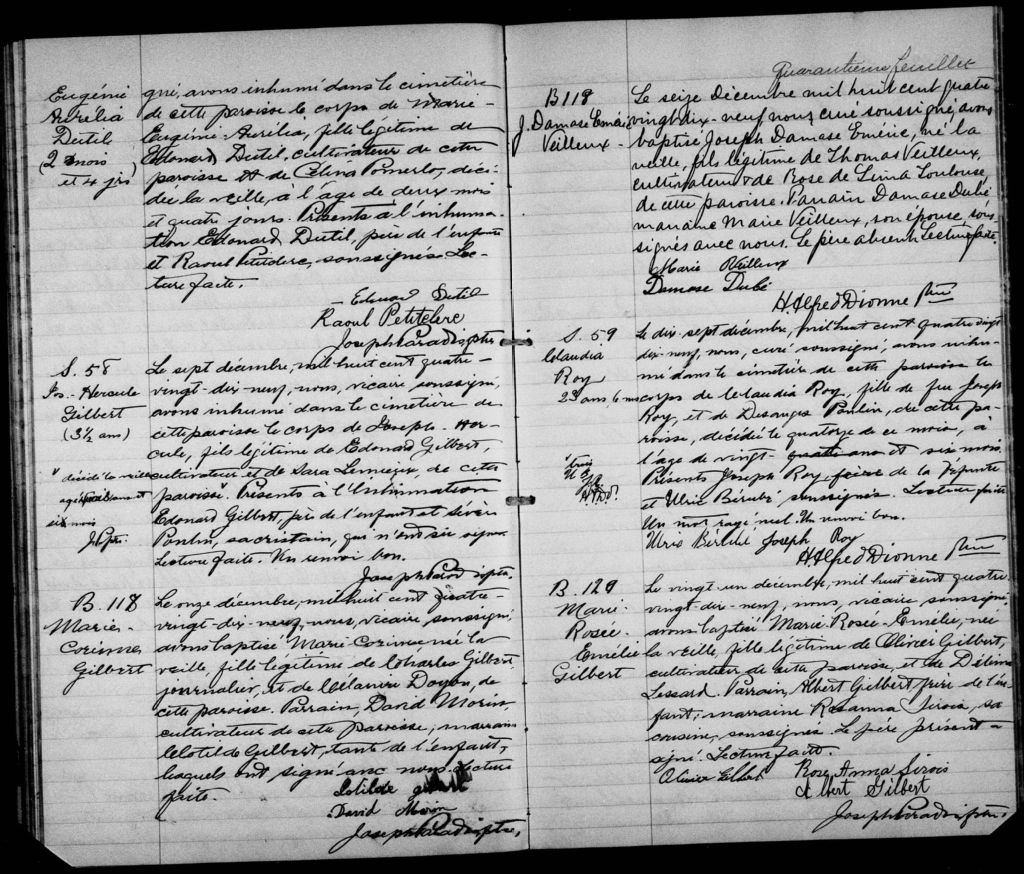 Eugénie
Aurélia
Dutil
2 mois
et 4 jrs)
gné, avons inhumé dans le cimetière
de cette paroisse le corps de Marie-
Eugénie-Aurélia, fille légitime de
Edouard Dutil, cultivateur de cette
paroisse et de Célina Pomerlo, décé-
dée la veille, à l'âge de deux mois
et quatre jours. Présents à l'inhuma-
tion Edouard Dutil, père de l'enfant
et Raoul Petitclerc, soussignés. Lec-
ture faite.
Edouard Dutil
Raoul Petitclerc
Joseph Paradis, ptre
S. 58
Jos.- Hercule
Gilbert
(3½ ans)
Le sept décembre, mil huit cent quatre-
vingt-dix-neuf, nous, vicaire soussigné,
avons inhumé dans le cimetière de
cette paroisse le corps de Joseph-Her-
cule, fils légitime de Edouard Gilbert,
cultivateur et de Sara Lemieux, de cette
paroisse. Présents à l'inhumation
Edouard Gilbert, père de l'enfant et
Poulin, sacristain, qui n'ont su signer.
Lecture faite. Un renvoi bon.
Joseph Paradis, ptre.
" décédé la veille
six mois
J.P. ptre.
B. 118
Marie-
Corinne
Gilbert
Le onze décembre, mil huit cent quatre-
vingt-dix-neuf, nous, vicaire soussigné,
avons baptisé Marie Corinne née la
veille, fille légitime de Charles Gilbert,
journalier, et de Mélanie Doyon, de
cette paroisse. Parrain, David Morin,
cultivateur de cette paroisse, marraine
Clotilde Gilbert, tante de l'enfant,
lesquels ont signé avec nous. Lecture
faite.
Lotilde
David Morin
Joseph Paradis, ptre,
Quarantième feuillet
B 118
J. Damase Eméric
Veilleux -
Le seize Décembre mil huit cent quatre
vingt dix-neuf nous curé soussigné avons
baptisé Joseph Damase Eméric, né la
veille, fils légitime de Thomas Veilleux,
cultivateur & de Rose de Lima Toulouse,
de cette paroisse. Parrain Damase Dubé
marraine Marie Veilleux, son épouse, sous-
signés avec nous. Le père absent. Lecture faite.
Marie Veilleux
Damase Dubé
H Alfred Dionne Ptre
S. 59
Claudia
Roy
23 ans, 6 ms
Le dix-sept décembre, mil huit cent quatre vingt
dix-neuf, nous, curé soussigné, avons inhu-
mé dans le cimetière de cette paroisse le
corps de Claudia Roy, fille de feu Joseph
Roy, et de Desanges Poulin, de cette pa-
roisse, décédée le quatorze de ce mois, à
l'âge de vingt- quatre ans et six mois.
Présents Joseph Roy, frère de la défunte
et Ulric Bérubé soussignés. Lecture faite
Un mot rayé nul. Un renvoi bon.
Ulric Bérubé Joseph Roy
H Alfred Dionne Ptre
"trois
B. 120
Marie-
Rosée-
Emélie
Gilbert
Le vingt-un décembre, mil huit cent quatre-
vingt-dix-neuf, nous, vicaire soussigné,
avons baptisé Marie-Rosée-Emélie, née
la veille, fille légitime de Olivier Gilbert,
cultivateur de cette paroisse, et de Délima
Lessard. Parrain, Albert Gilbert frère de l'en-
fant; marraine Rosanna Sirois, sa
cousine, soussignés. Le père présent a
signé. Lecture faite.
Olivier
Rose Anna Sirois
Albert Gilbert
Joseph Paradis, ptre.